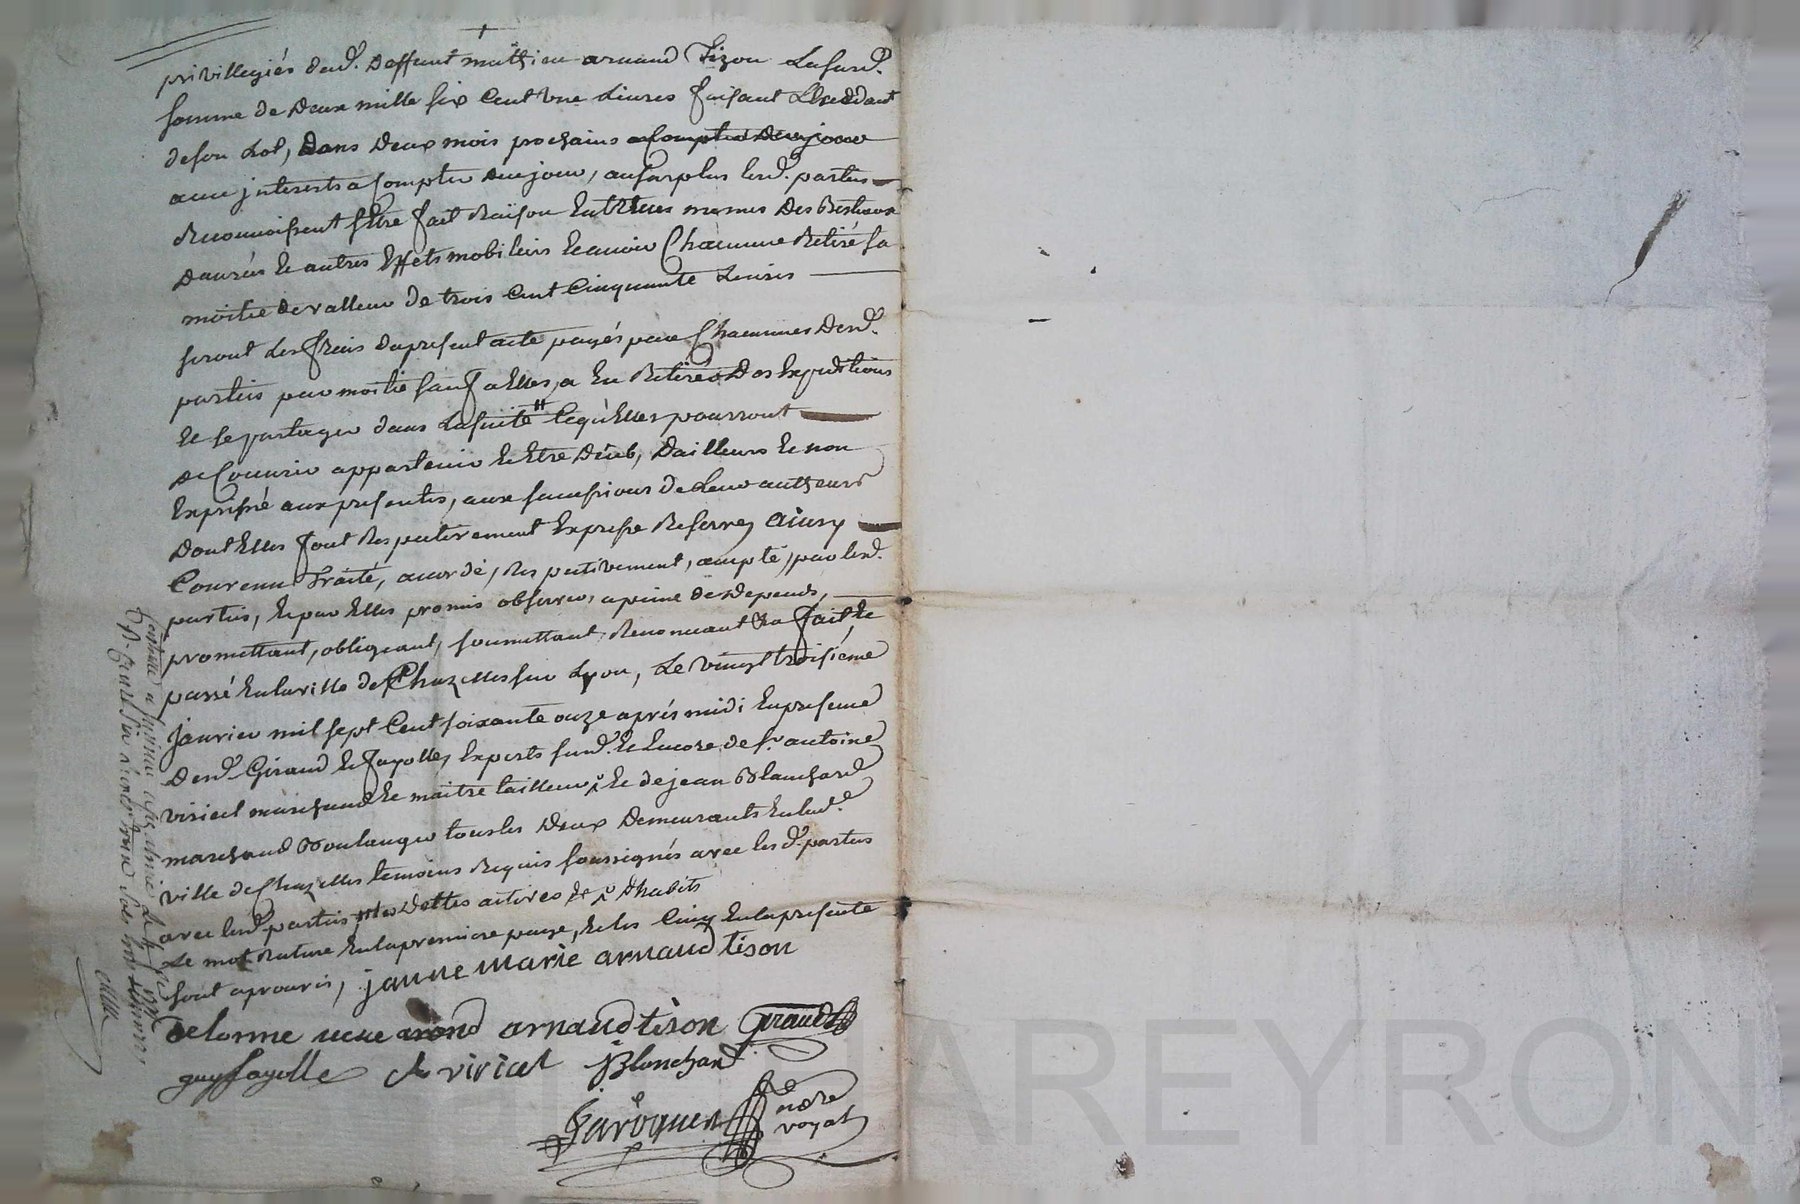 privillegiés dud. deffunt mathieu arnaud Tizon Lasusd.
somme de deux mille six Cent une Livres faisant L'Exeddant
de son Lot, dans deux mois prochains a Compter de ce jour
avec jnterests a Compter de ce jour, au surplus lesd. parties
Reconnoissent s'Etre fait Raison Entr'Elles memes des Bestiaux
danrées Et autres Effets mobiliers Et avoir Chacune Retiré sa
moitié de valleur de trois Cent Cinquante Livres
seront Les frais du present acte payés par Chacunes desd.
parties par moitié sauf a Elles, a En Retirer des Expeditions
Et se partager dans La suite # Ce qu'Elles pourront
de Couvrir appartenir Et Etre deub, d'ailleurs Et non
Exprimé aux presentes, aux successions de Leur autheurs
dont Elles font Respectivement Expresse Reserve, ainsy
Convenu Traité, accordé, Respectivement, accepté, par lesd.
parties, Et par Elles promis observer, a peine de depends,
promettant, obligeant, soumettant, Renonceant &a fait Et
passé En la ville de Chazelles sur Lyon, Le vingt troisiéme
janvier mil sept Cent soixante onze aprés midi En presence
desd. Giraud Et fayolle, Experts susd. Et Encore de sr. antoine
viricel marchand Et maitre tailleur Et de jean Blanchard
marchand Boulanger tous les deux demeurants En lad.
ville de Chazelles temoins Requis soussignés avec les d. parties
avec lesd. parties, # les dettes actives & d'habits
Le mot Nature En la premiere page, Et les Cinq En la presente
sont aprouvés, janne marie arnaud tison
delorme veuve arnaud arnaud tison Giraud
guy fayolle A viricel J Blanchard
Faroquet nore
royal